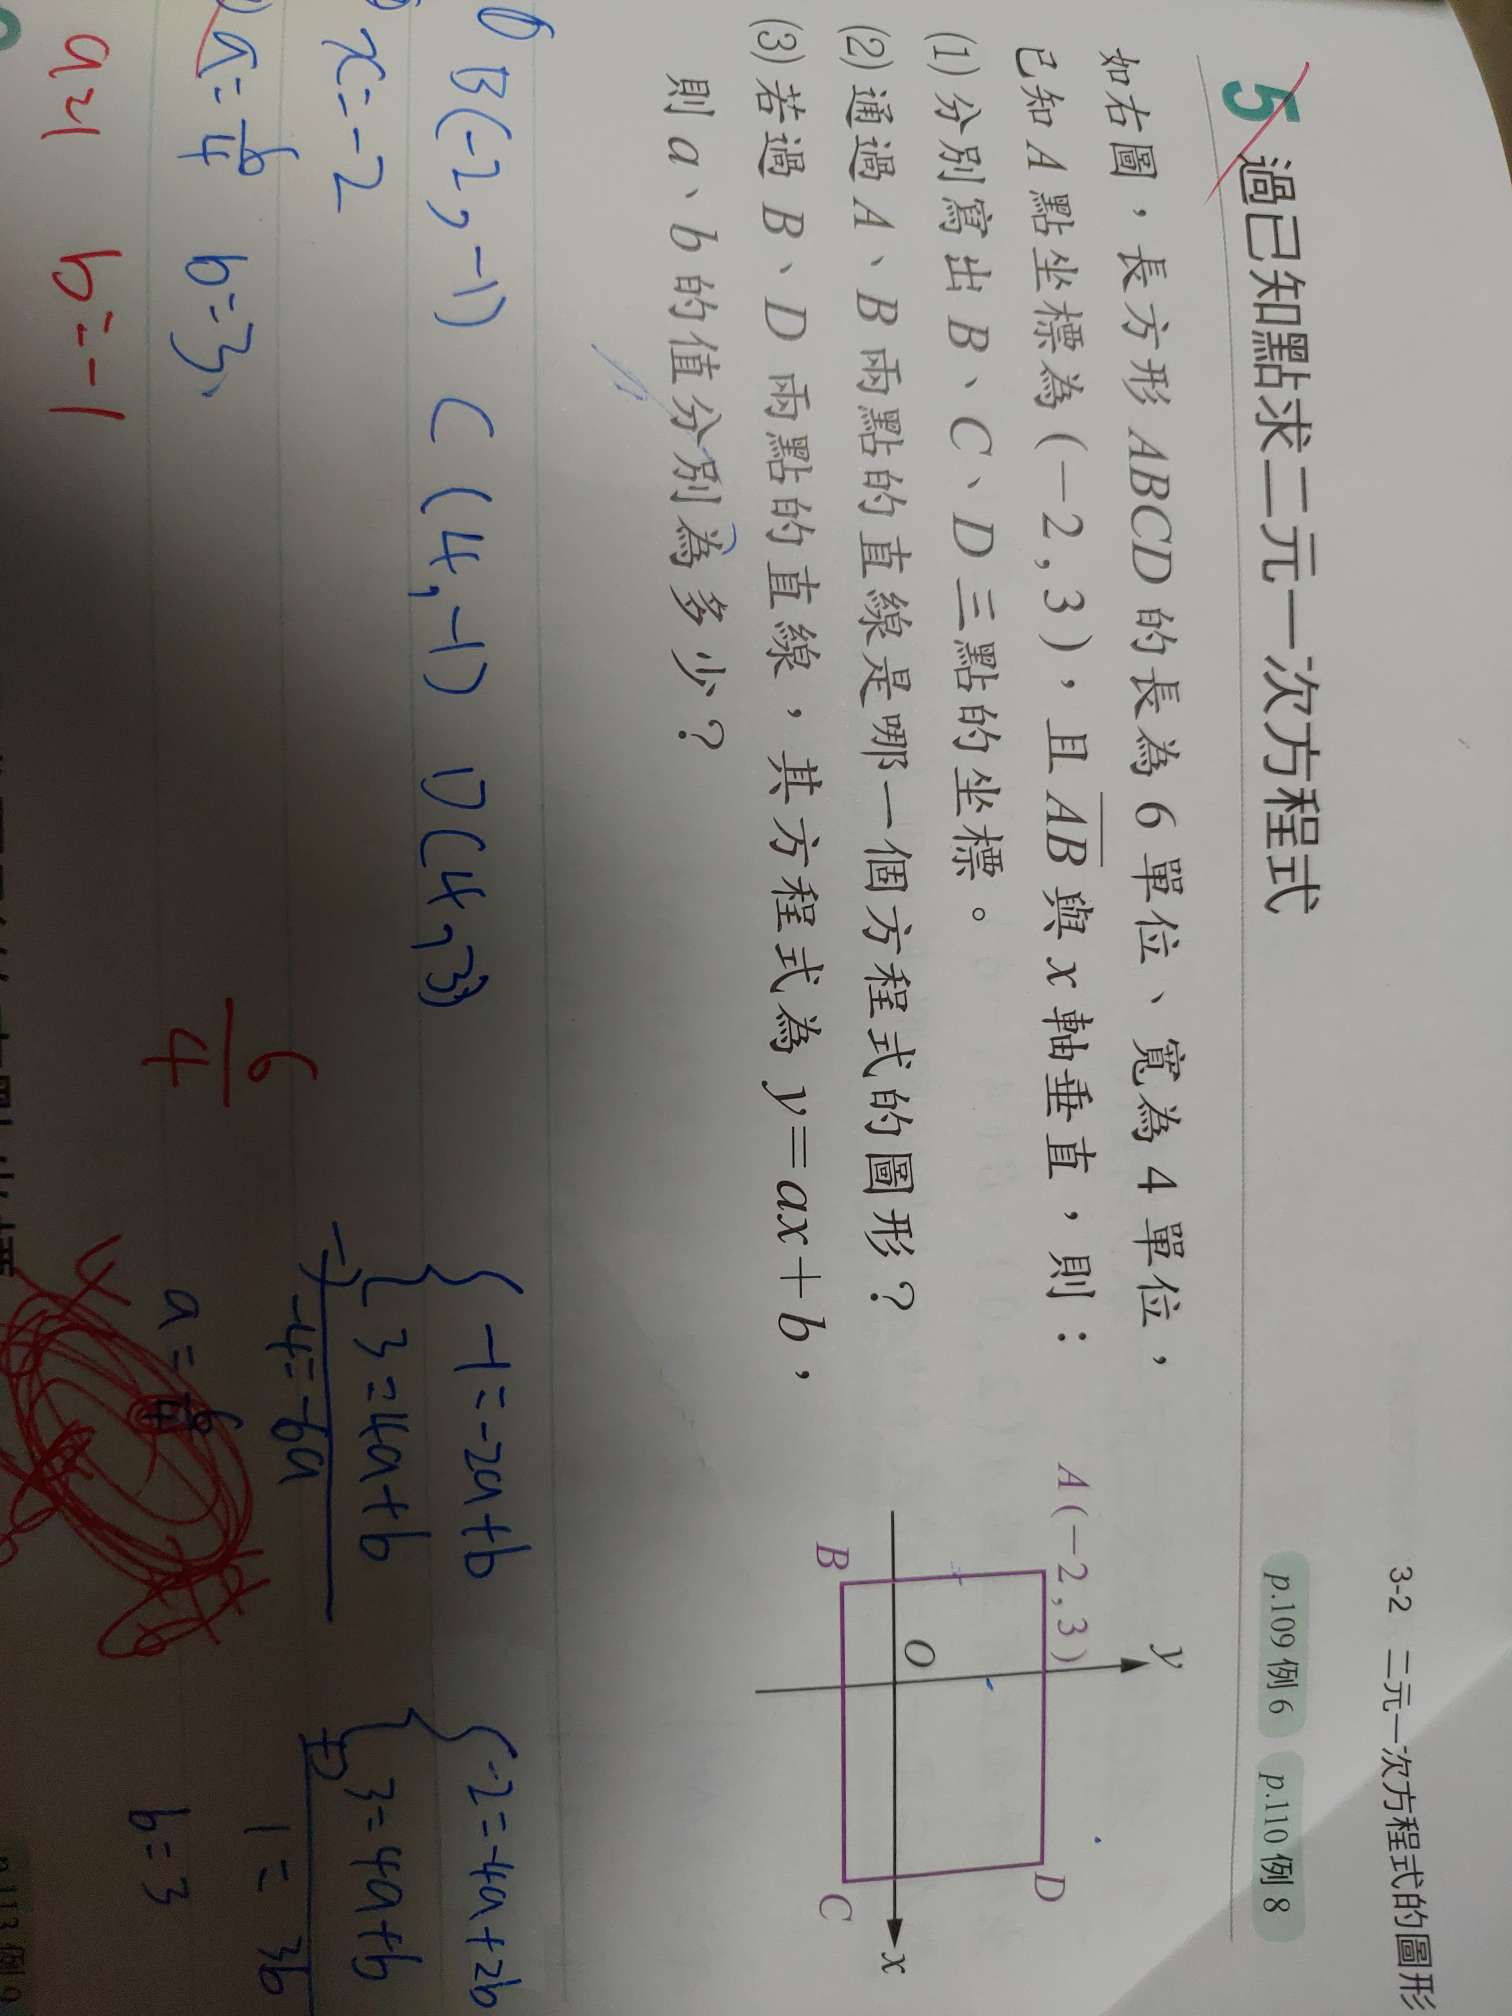 3-2 二元一次方程式的圖形
5 過已知點求二元一次方程式 p.109 例 6 p.110 例 8
如右圖，長方形 ABCD 的長為 6 單位、寬為 4 單位，
已知 A 點坐標為 (-2,3)，且 AB 與 x 軸垂直，則：
(1) 分別寫出 B、C、D 三點的坐標。
(2) 通過 A、B 兩點的直線是哪一個方程式的圖形？
(3) 若過 B、D 兩點的直線，其方程式為 y=ax+b，
則 a、b 的值分別為多少？
y
A(-2,3)
D
O
x
B
C
B(-2,-1) C(4,-1) D(4,3)
x=-2
a=6/4 b=3
b=-1
6/4
-1=-2a+b
3=4a+b
-4=-6a
a=6/4
-2=-4a+2b
3=4a+b
1=3b
b=3